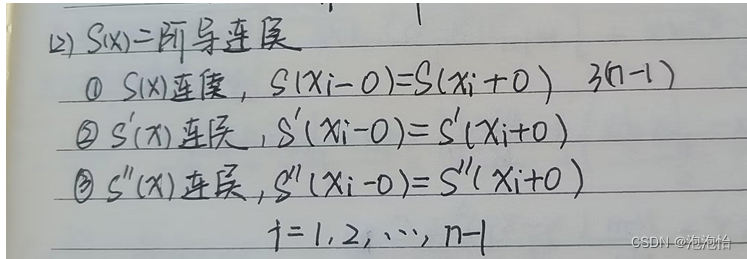 (2) S(x)二阶导连续
① S(x)连续, S(xi-0)=S(xi+0) 3(n-1)
② S'(x)连续, S'(xi-0)=S'(xi+0)
③ S''(x)连续, S''(xi-0)=S''(xi+0)
i=1,2,…,n-1
CSDN @泡泡怡